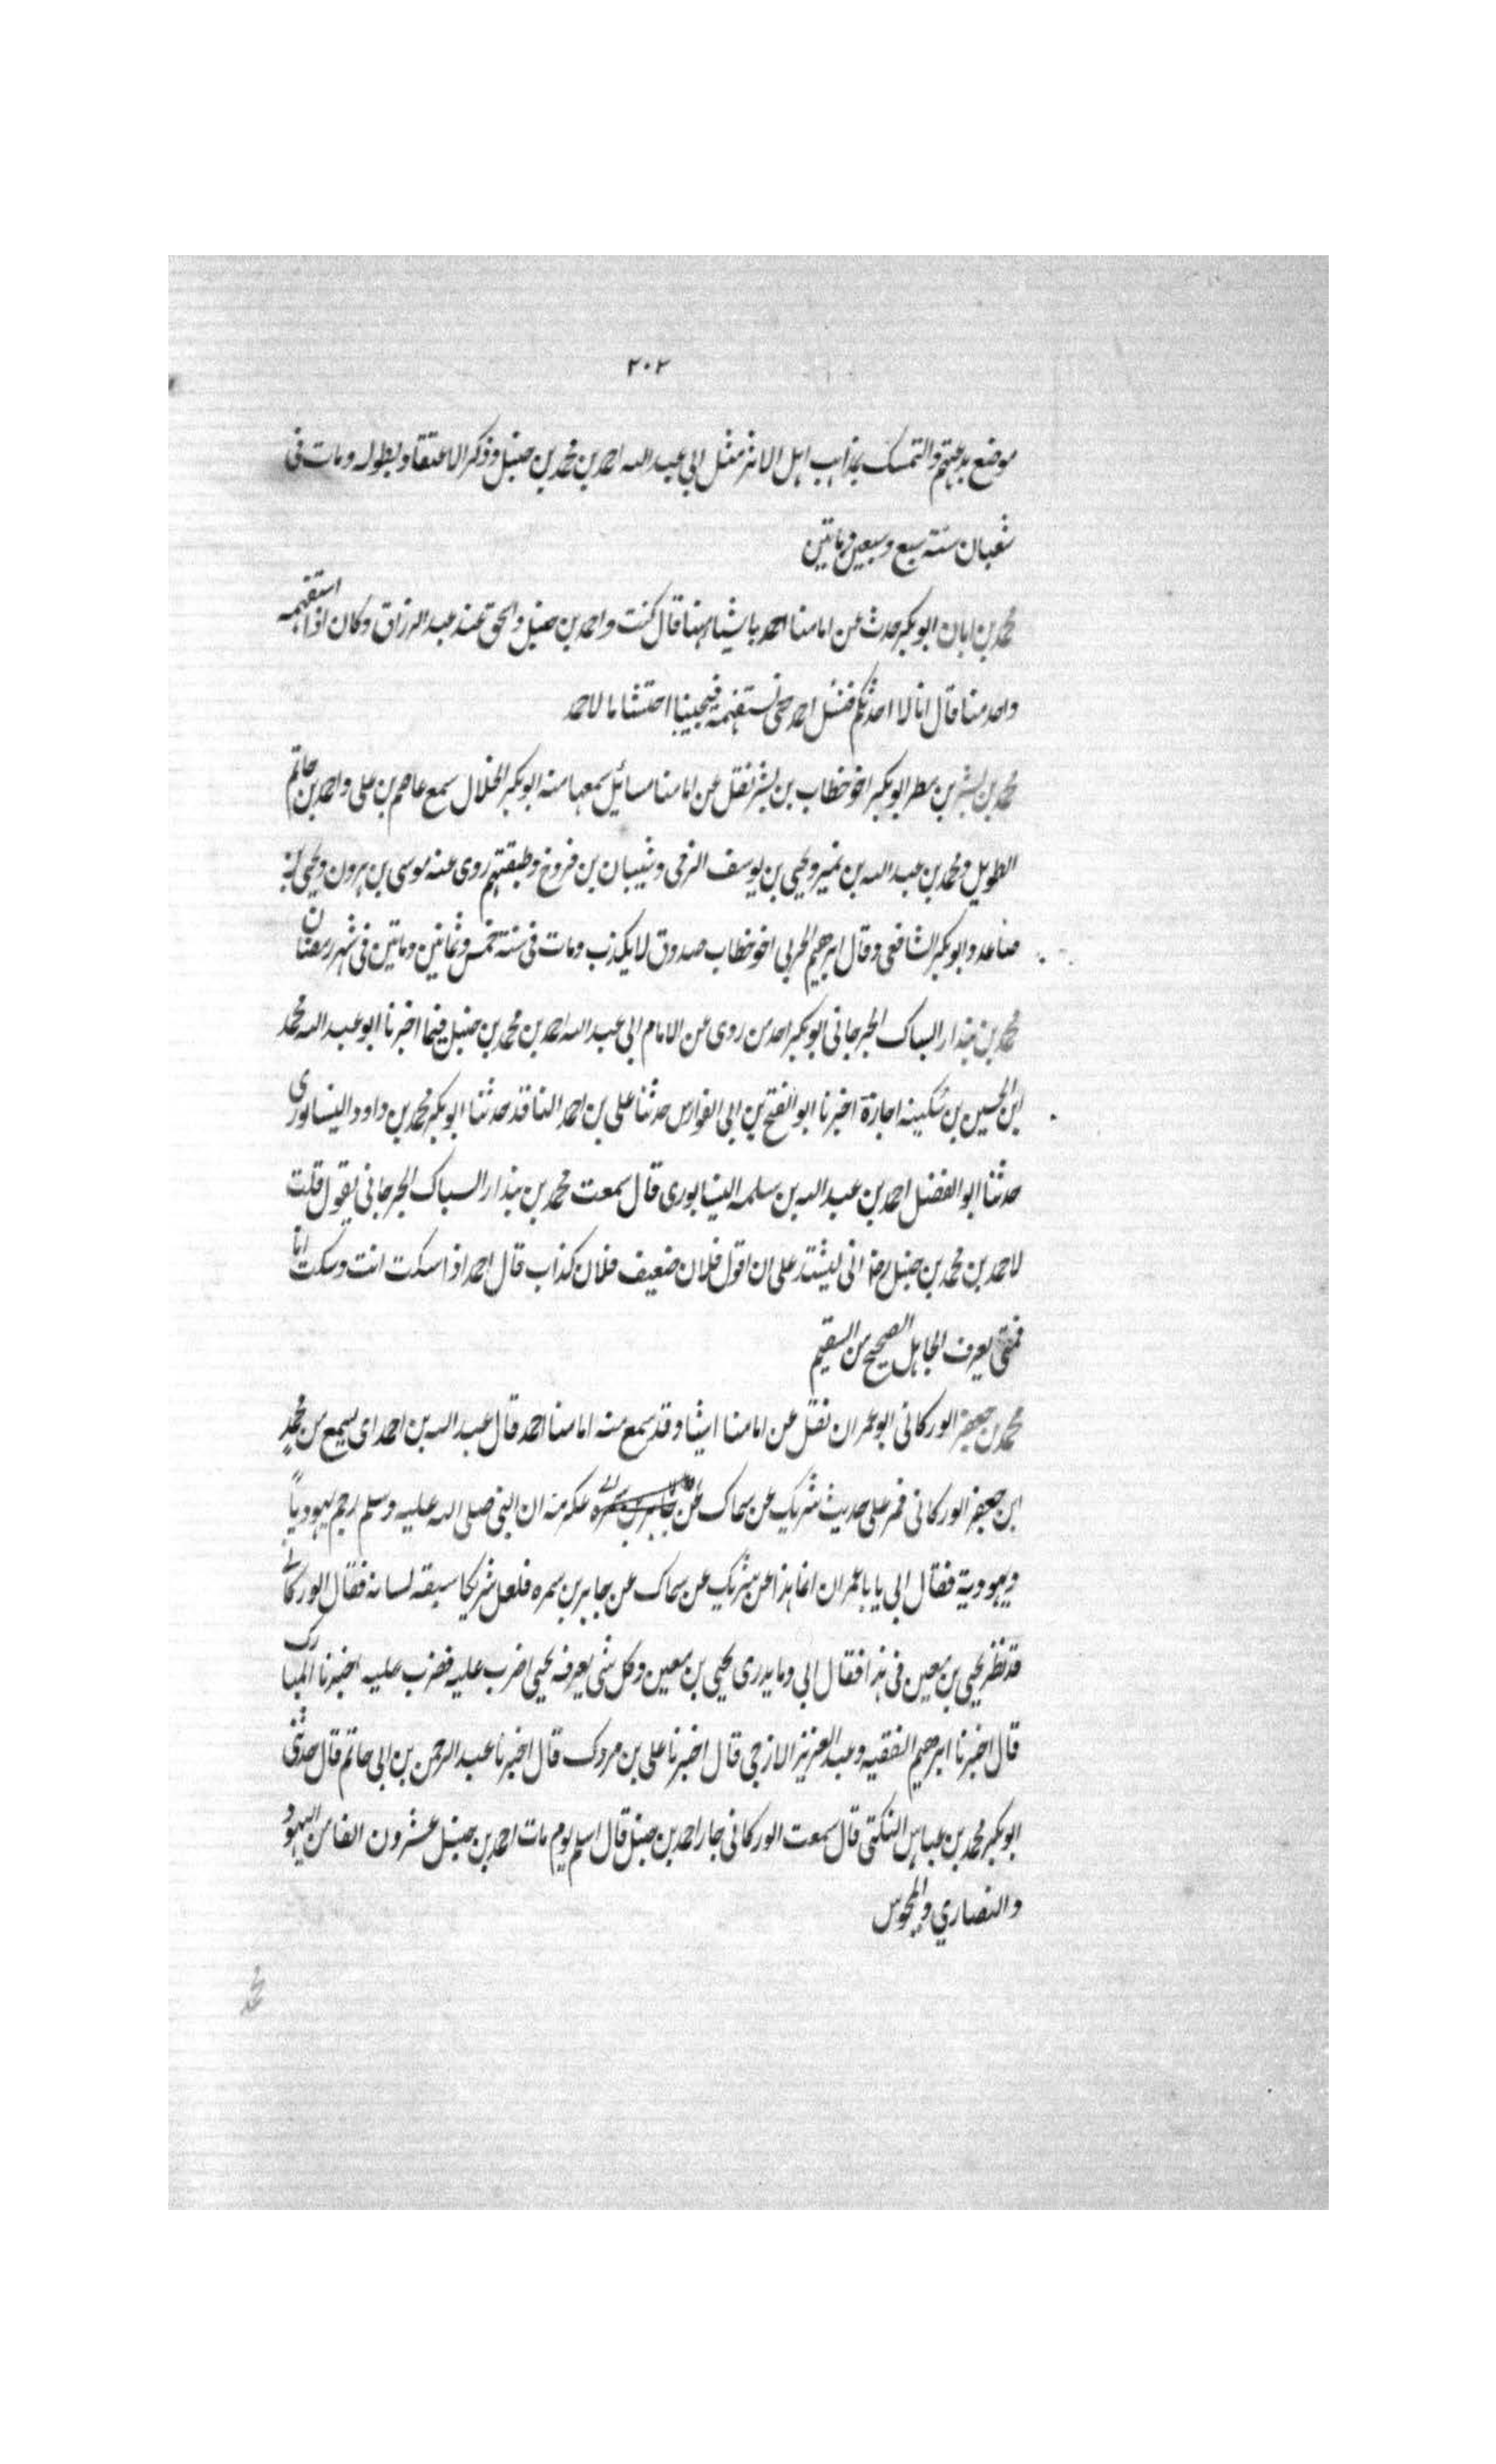 ٢٠٢
موضع بدعتهم والتمسك بمذاهب اهل الاثر مثل ابي عبد الله احمد بن محمد بن حنبل وذكر الاعتقاد بطوله ومات فى
شعبان سنة سبع وسبعين ومأتين
محمد بن ابان ابو بكر حدث عن امامنا احمد باشياء منها قال كنت واحمد بن حنبل واسحق عند عبد الرزاق وكان اذا استفهمه
واحد منا قال انا لا احدثكم فنسل احمد حتى نستفهمه فيجيبنا احتشاما لاحمد
محمد بن بشر بن مطر ابو بكر اخو خطاب بن بشر نقل عن امامنا مسائل سمعها منه ابو بكر الخلال سمع عاصم بن على واحمد بن حاتم
الطويل ومحمد بن عبد الله بن نمير ويحيى بن يوسف الزمى وشيبان بن فروخ وطبقتهم روى عنه موسى بن هرون ويحيى بن
صاعد وابو بكر الشافعى وقال ابرهيم الحربى اخو خطاب صدوق لا يكذب ومات فى سنة خمس وثمانين ومأتين فى شهر رمضان
محمد بن بندار السباك الجرجانى ابو بكر احد من روى عن الامام ابى عبد الله احمد بن محمد بن حنبل فيما اخبرنا ابو عبد الله محمد
ابن الحسين بن سكينه اجازة اخبرنا ابو الفتح بن ابى الفوارس حدثنا على بن احمد الناقد حدثنا ابو بكر محمد بن داود النيسابورى
حدثنا ابو الفضل احمد بن عبد الله بن سلمه النيسابورى قال سمعت محمد بن بندار السباك الجرجانى يقول قلت
لاحمد بن محمد بن حنبل رضـ انى ليشتد على ان اقول فلان ضعيف فلان كذاب قال احمد اذا سكت انت وسكت انا
فمتى يعرف الجاهل الصحيح من السقيم
محمد بن جعفر الوركانى ابو عمران نقل عن امامنا اشياء وقد سمع منه امامنا احمد قال عبد الله بن احمد اى يسمع من محمد
ابن جعفر الوركانى فمر على حديث شريك عن سماك عن عكرمة ان النبى صلى الله عليه وسلم رجم يهودياً
ويهودية فقال ابى يا با عمران انما هذا عن شريك عن سماك عن جابر بن سمره فلعل شريكا سبقه لسانه فقال الوركانى
قد نظر يحيى بن معين فى هذا فقال ابى وما يدرى يحيى بن معين وكل شى يعرفه يحيى اضرب عليه فضرب عليه اخبرنا المبارك
قال اخبرنا ابرهيم الفقيه وعبد العزيز الازجى قال اخبرنا على بن مردك قال اخبرنا عبد الرحمن بن ابى حاتم قال حدثنى
ابو بكر محمد بن عباس المكى قال سمعت الوركانى جار احمد بن حنبل قال اسلم يوم مات احمد بن حنبل عشرون الفا من اليهود
والنصارى والمجوس
محمد